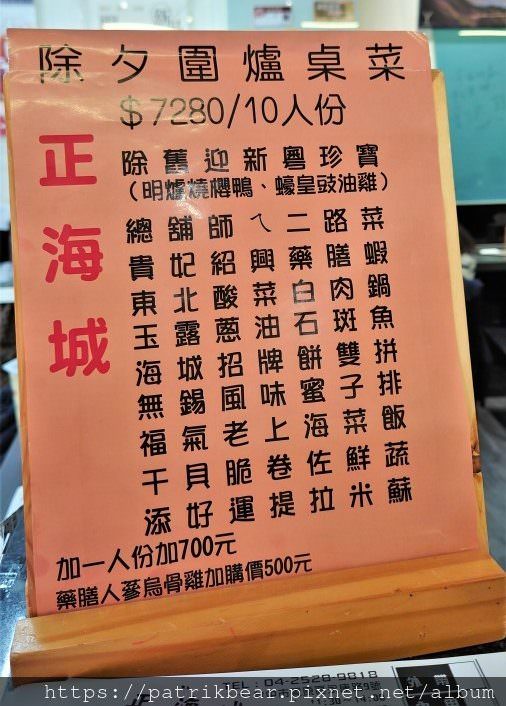 除夕圍爐桌菜
$7280/10人份
正海城
除舊迎新粵珍寶
(明爐燒櫻鴨、蠔皇豉油雞)
總舖師ㄟ二路菜
貴妃紹興藥膳蝦
東北酸菜白肉鍋
玉露蔥油石斑魚
海城招牌餅雙拼
無錫風味蜜子排
福氣老上海菜飯
干貝脆卷佐鮮蔬
添好運提拉米蘇
加一人份加700元
藥膳人蔘烏骨雞加購價500元
TEL:04-2528-9818
https://patrikbear.pixnet.net/album